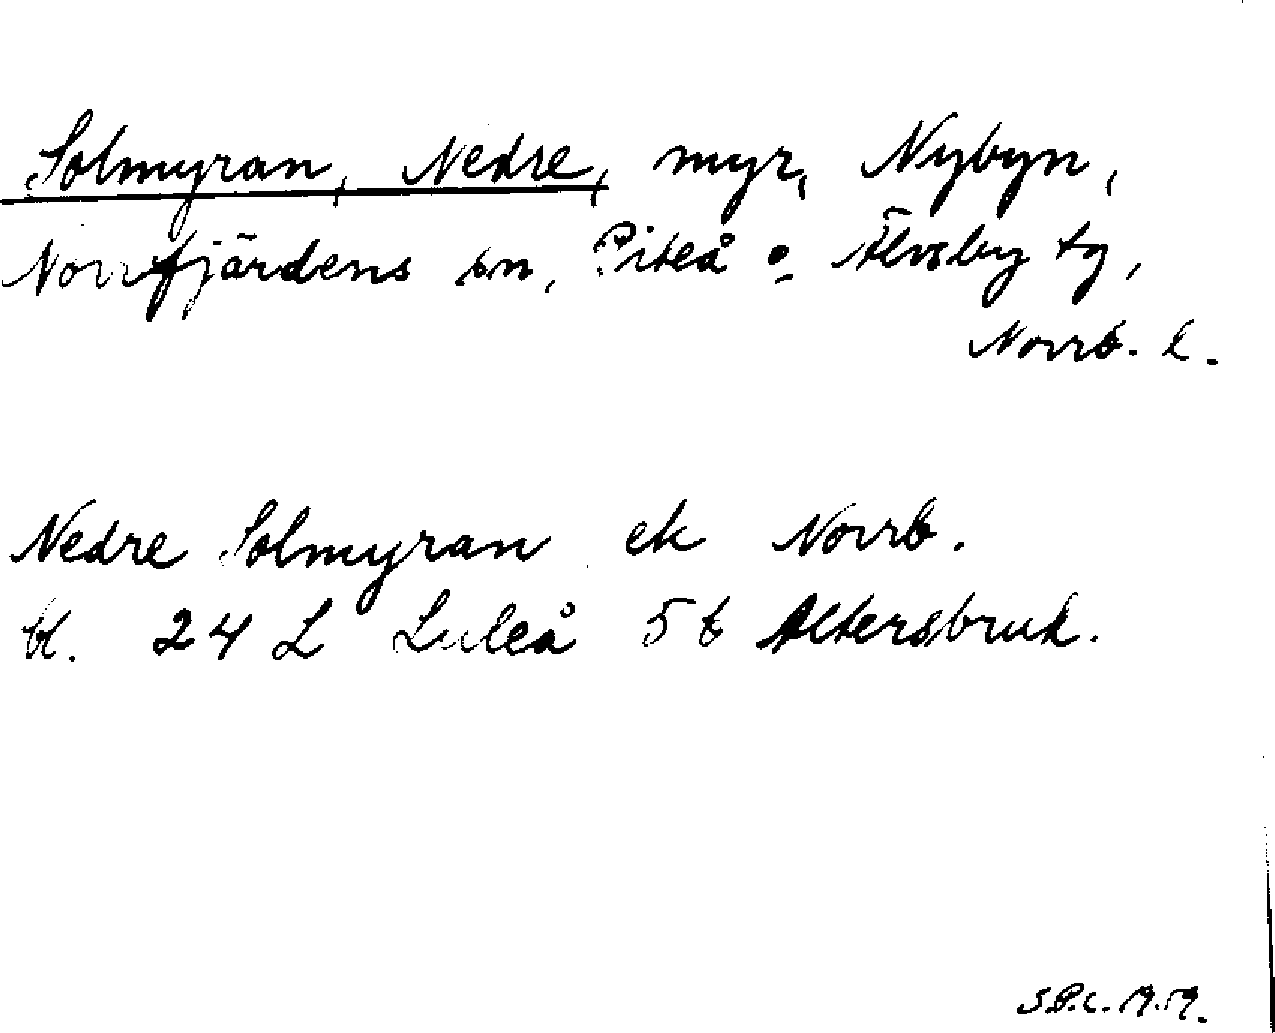 Solmyran, Nedre, myr, Nybyn,
Norrfjärdens sn, Piteå o. Älvsby tg,
Norrb. l.
Nedre Solmyran ek Norrb.
bl. 24 L Luleå 5 b Altersbruk.
S.P.C. 1959.